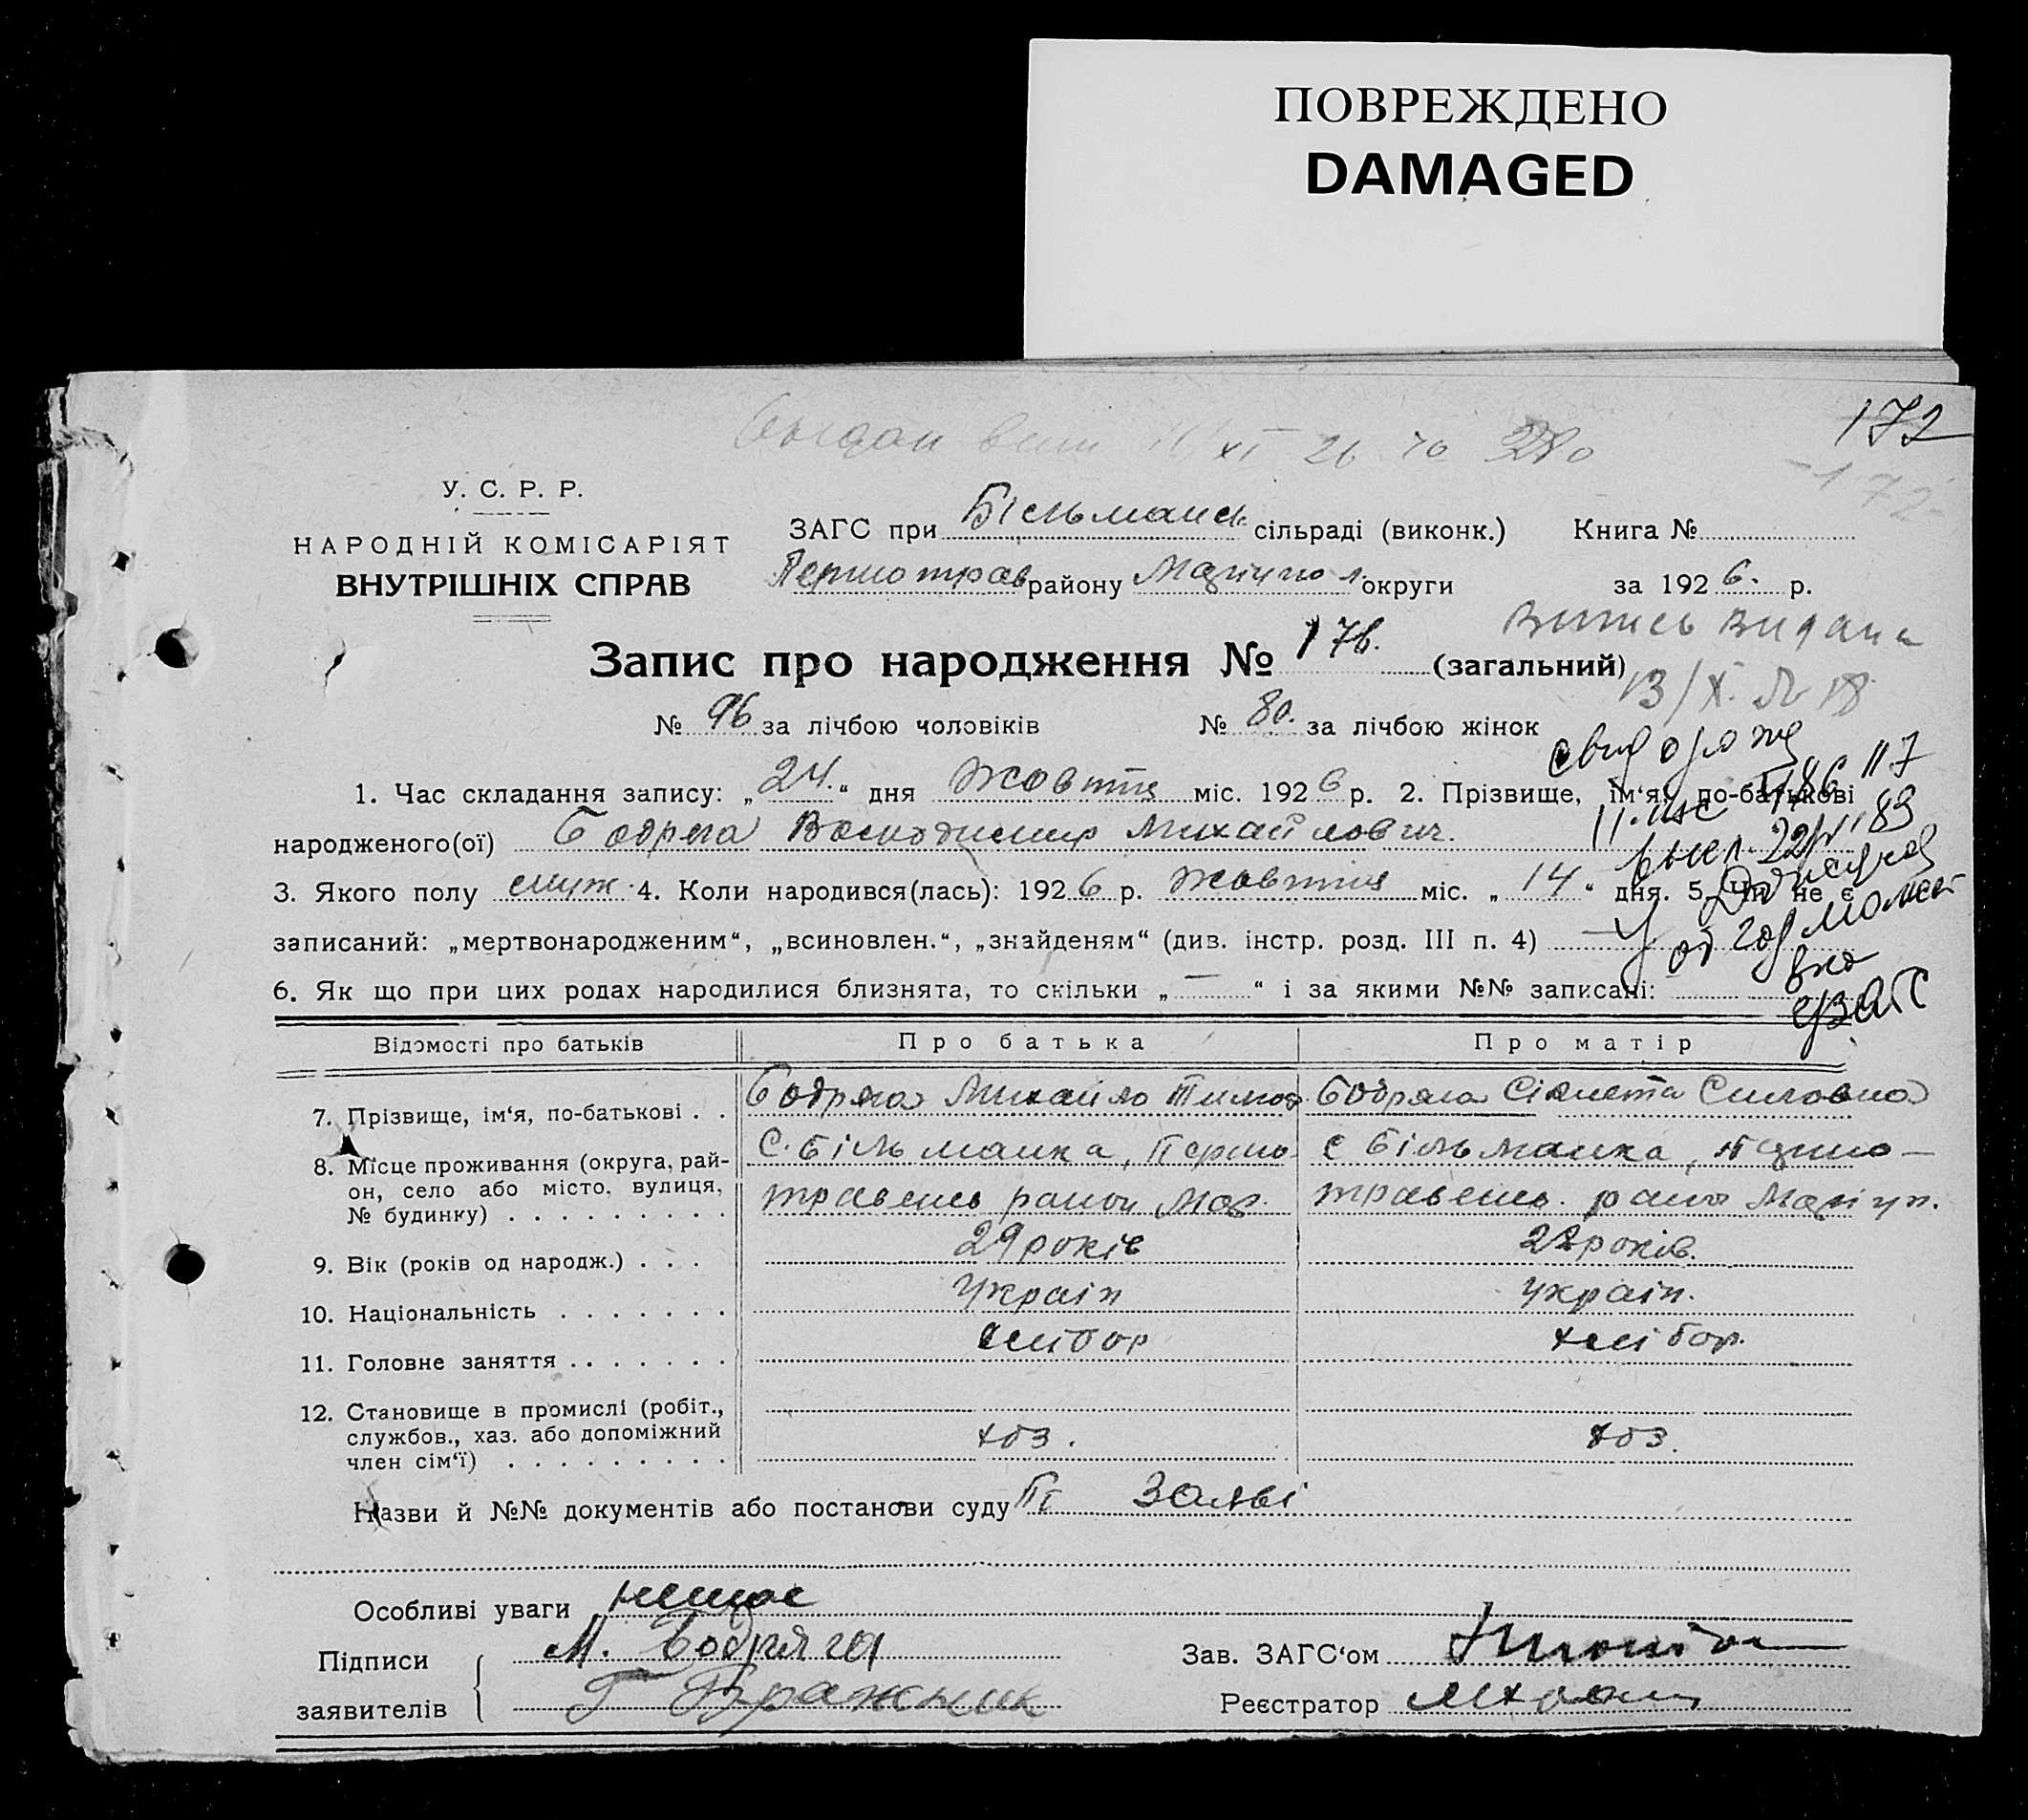 ПОВРЕЖДЕНО
DAMAGED
172
172
XI 26
У. С. Р. Р.
НАРОДНІЙ КОМІСАРІЯТ
ВНУТРІШНІХ СПРАВ
ЗАГС при Більманск. сільраді (виконк.) Книга №
Першотрав району Маріупол. округи за 1926. р.
Випись видана
13/X. № 18
Запис про народження № 176. (загальний)
№ 96 за лічбою чоловіків № 80. за лічбою жінок
свид о рожд
1. Час складання запису: „24.“ дня Жовтня міс. 1926 р. 2. Прізвище, ім‘я, по-батькові
народженого(ої) Бодряга Володимир Михайлович.
3. Якого полу муж. 4. Коли народився(лась): 1926 р. Жовтня міс. „14“ дня. 5. Чи не є
записаний: „мертвонародженим“, „всиновлен.“, „знайденям“ (див. інстр. розд. III п. 4) —
6. Як що при цих родах народилися близнята, то скільки „—“ і за якими №№ записані:
ЗАГС
Відомості про батьків Про батька Про матір
7. Прізвище, ім‘я, по-батькові . . Бодряга Михайло Тимоф Бодряга Силовна
8. Місце проживання (округа, рай- С. Більманка, Першо- с Більманка, Першо-
он, село або місто, вулиця, травень район Мар. травень. район Маріуп.
№ будинку) . . . . . . . . .
9. Вік (років од народж.) . . . 29 років 22 років.
10. Національність . . . . . . . Україн україн.
11. Головне заняття . . . . . . . хлібор хлібор.
12. Становище в промислі (робіт.,
службов., хаз. або допоміжний хоз. хоз.
член сім‘ї) . . . . . . . . .
Назви й №№ документів або постанови суду По заяві
Особливі уваги немає
Підписи М. Бодряга Зав. ЗАГС‘ом
заявителів Г Бражник Реєстратор